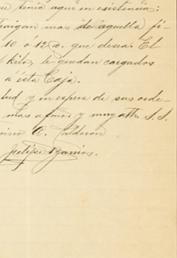 que tenía aquí en existencia;
traigan mas de aquella fi
10 ó 12 a. que desea. El
kilo, le quedan cargados
a ésta Caja.
lud y en espera de sus orde
mas afmos y muy atto S. S.
C. Calderon
Felipe